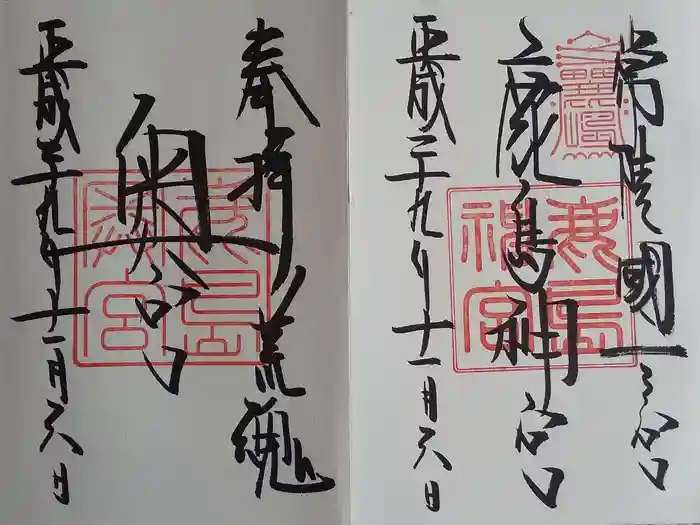 常陸國一之宮
鹿島神宮
平成二十九年十一月六日
鹿島神宮
奉拝 荒魂
奥宮
平成二十九年十一月六日
鹿島神宮